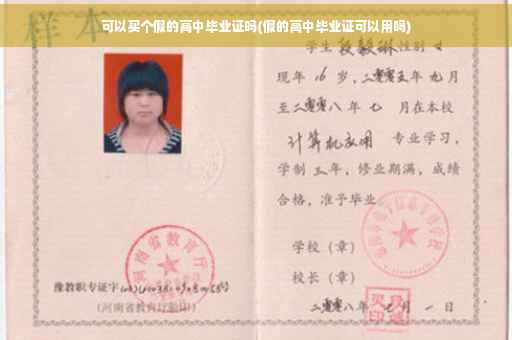 可以买个假的高中毕业证吗(假的高中毕业证可以用吗)
样本
学生 段毅琳 性别 女
现年 16 岁,二零零五年 九月
至二零零八年 七 月在本校
计算机应用 专业学习,
学制 三年,修业期满,成绩
合格,准予毕业
学校(章)
校长(章)
河南省教育厅
豫教职专证字
(河南省教育厅验印)
二零零八年 七 月 一 日